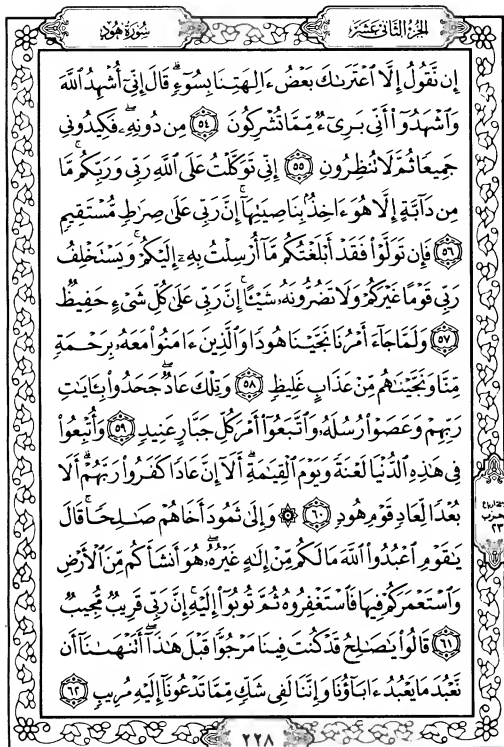 الجزء الثانى عشر
سورة هود
إِن نَّقُولُ إِلَّا ٱعْتَرَىٰكَ بَعْضُ ءَالِهَتِنَا بِسُوٓءٍۗ قَالَ إِنِّىٓ أُشْهِدُ ٱللَّهَ
وَٱشْهَدُوٓا۟ أَنِّى بَرِىٓءٌ مِّمَّا تُشْرِكُونَ ٥٤ مِن دُونِهِۦۖ فَكِيدُونِى
جَمِيعًا ثُمَّ لَا تُنظِرُونِ ٥٥ إِنِّى تَوَكَّلْتُ عَلَى ٱللَّهِ رَبِّى وَرَبِّكُمۚ مَّا
مِن دَآبَّةٍ إِلَّا هُوَ ءَاخِذٌۢ بِنَاصِيَتِهَآۚ إِنَّ رَبِّى عَلَىٰ صِرَٰطٍ مُّسْتَقِيمٍ
٥٦ فَإِن تَوَلَّوْا۟ فَقَدْ أَبْلَغْتُكُم مَّآ أُرْسِلْتُ بِهِۦٓ إِلَيْكُمْۚ وَيَسْتَخْلِفُ
رَبِّى قَوْمًا غَيْرَكُمْ وَلَا تَضُرُّونَهُۥ شَيْـًٔاۚ إِنَّ رَبِّى عَلَىٰ كُلِّ شَىْءٍ حَفِيظٌ
٥٧ وَلَمَّا جَآءَ أَمْرُنَا نَجَّيْنَا هُودًا وَٱلَّذِينَ ءَامَنُوا۟ مَعَهُۥ بِرَحْمَةٍ
مِّنَّا وَنَجَّيْنَٰهُم مِّنْ عَذَابٍ غَلِيظٍ ٥٨ وَتِلْكَ عَادٌۖ جَحَدُوا۟ بِـَٔايَٰتِ
رَبِّهِمْ وَعَصَوْا۟ رُسُلَهُۥ وَٱتَّبَعُوٓا۟ أَمْرَ كُلِّ جَبَّارٍ عَنِيدٍ ٥٩ وَأُتْبِعُوا۟
فِى هَٰذِهِ ٱلدُّنْيَا لَعْنَةً وَيَوْمَ ٱلْقِيَٰمَةِۗ أَلَآ إِنَّ عَادًا كَفَرُوا۟ رَبَّهُمْۗ أَلَا
بُعْدًا لِّعَادٍ قَوْمِ هُودٍ ٦٠ ۞ وَإِلَىٰ ثَمُودَ أَخَاهُمْ صَٰلِحًاۚ قَالَ
يَٰقَوْمِ ٱعْبُدُوا۟ ٱللَّهَ مَا لَكُم مِّنْ إِلَٰهٍ غَيْرُهُۥۖ هُوَ أَنشَأَكُم مِّنَ ٱلْأَرْضِ
وَٱسْتَعْمَرَكُمْ فِيهَا فَٱسْتَغْفِرُوهُ ثُمَّ تُوبُوٓا۟ إِلَيْهِۚ إِنَّ رَبِّى قَرِيبٌ مُّجِيبٌ
٦١ قَالُوا۟ يَٰصَٰلِحُ قَدْ كُنتَ فِينَا مَرْجُوًّا قَبْلَ هَٰذَآۖ أَتَنْهَىٰنَآ أَن
نَّعْبُدَ مَا يَعْبُدُ ءَابَآؤُنَا وَإِنَّنَا لَفِى شَكٍّ مِّمَّا تَدْعُونَآ إِلَيْهِ مُرِيبٍ ٦٢
حزب
٢٣
٢٢٨